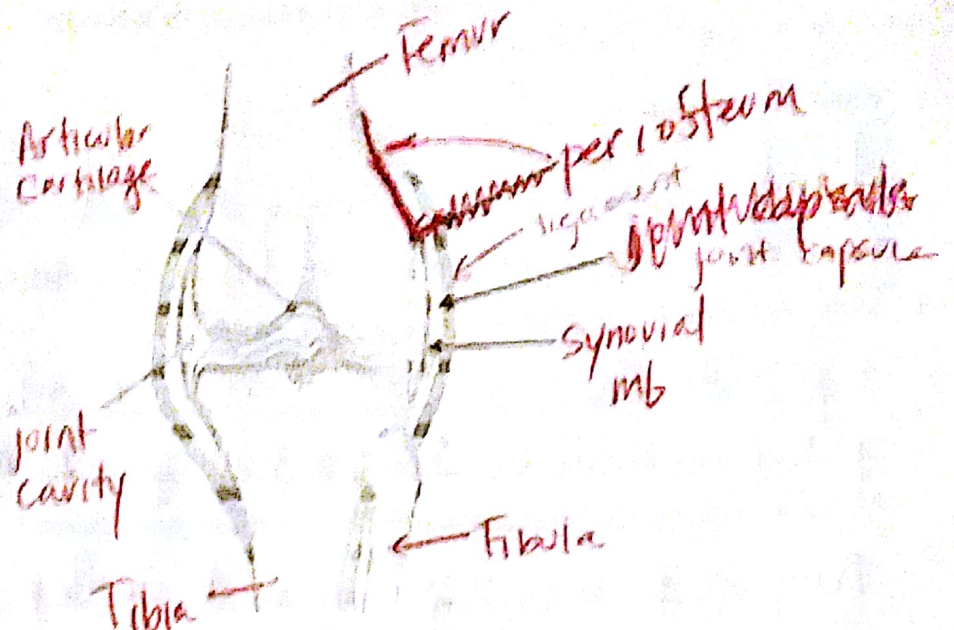 Femur
Articular
Cartilage
periosteum
ligament
joint capsule
Synovial
mb
joint
cavity
Fibula
Tibia